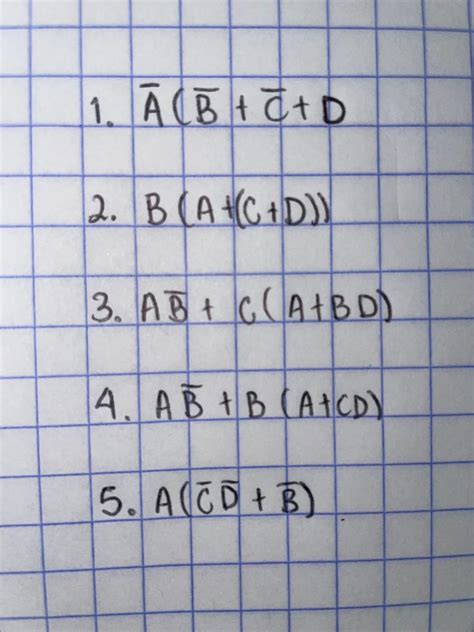 1. A̅(B̅ + C̅ + D
2. B(A+(C+D))
3. AB̅ + C(A+BD)
4. AB̅ + B(A+CD)
5. A(C̅D̅ + B̅)